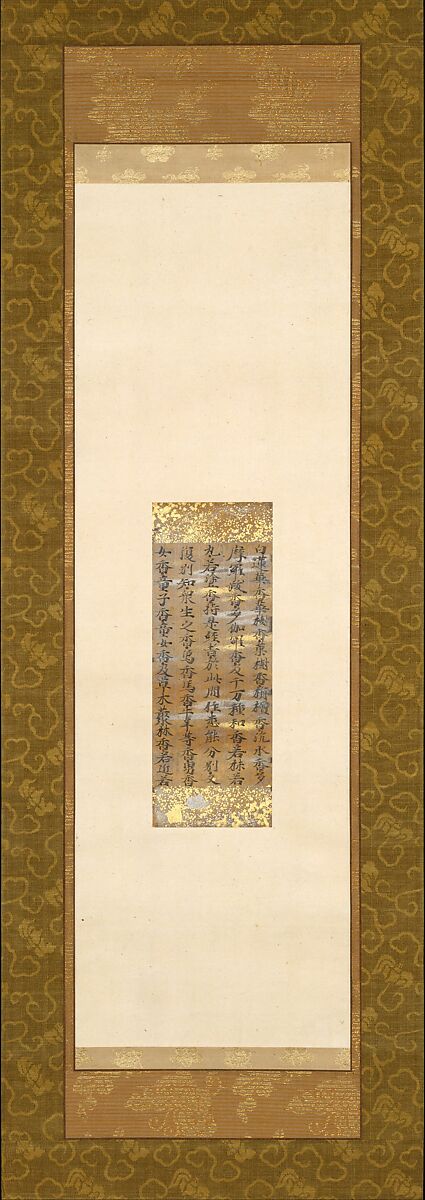 白蓮華香華樹香菓樹香栴檀香沈水香多
摩羅跋香多伽羅香及千万種和香若抹若
丸若塗香持是経者於此間住悉能分別又
復別知衆生之香象香馬香牛羊等香男香
女香童子香童女香及草木叢林香若近若